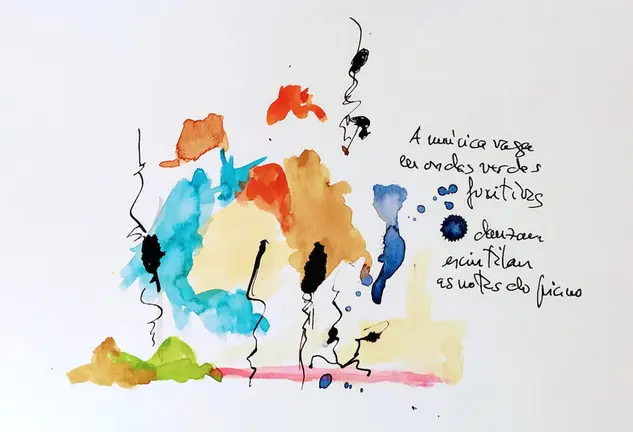 A música vaga
en ondas verdes
fuxitivas
danzan
escintilan
as notas do piano